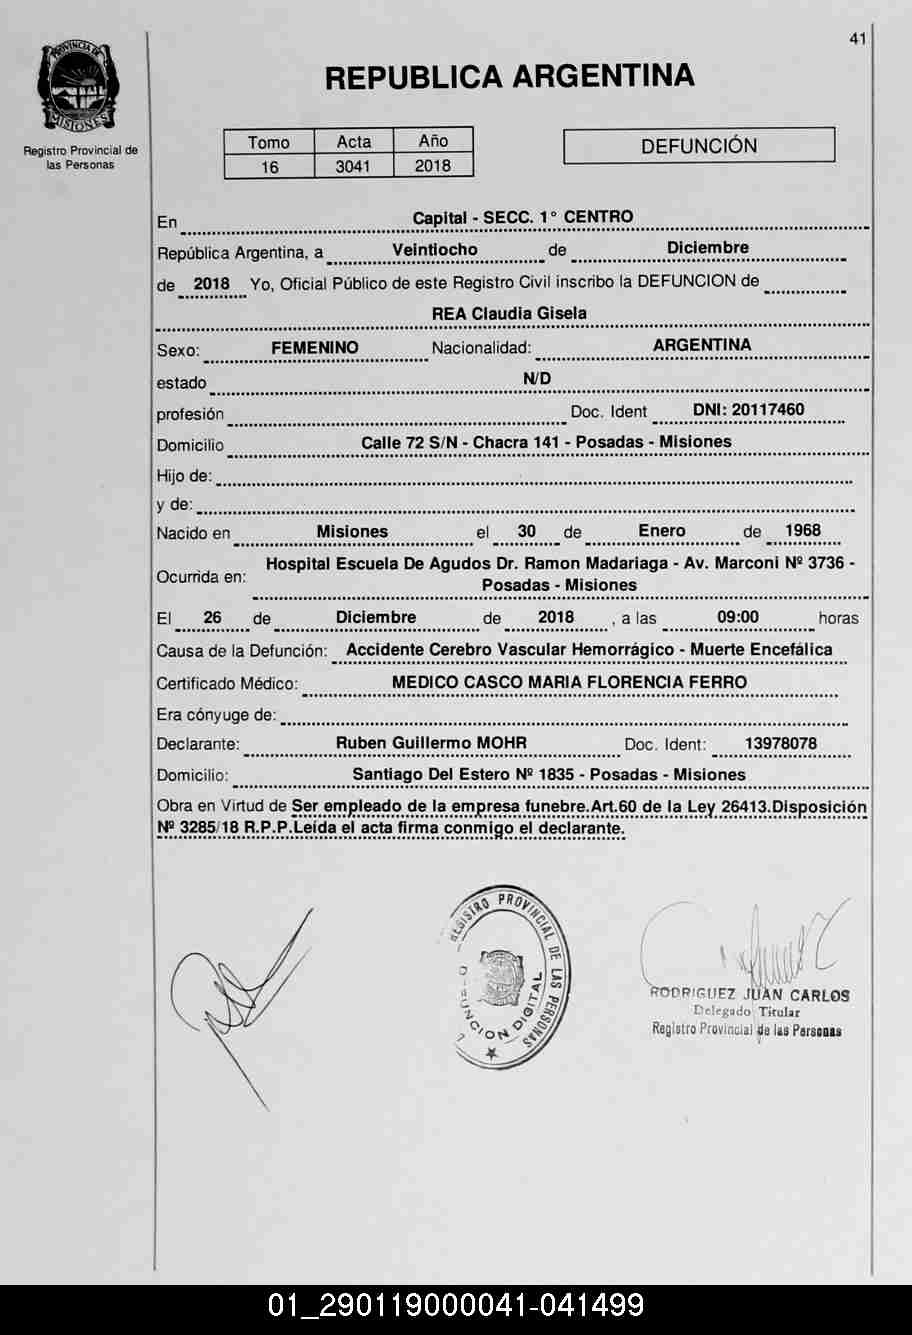 41
PROVINCIA DE
MISIONES
Registro Provincial de
las Personas
REPUBLICA ARGENTINA
Tomo Acta Año
16 3041 2018
DEFUNCIÓN
En Capital - SECC. 1° CENTRO
República Argentina, a Veintiocho de Diciembre
de 2018 Yo, Oficial Público de este Registro Civil inscribo la DEFUNCION de
REA Claudia Gisela
Sexo: FEMENINO Nacionalidad: ARGENTINA
estado N/D
profesión Doc. Ident DNI: 20117460
Domicilio Calle 72 S/N - Chacra 141 - Posadas - Misiones
Hijo de:
y de:
Nacido en Misiones el 30 de Enero de 1968
Ocurrida en: Hospital Escuela De Agudos Dr. Ramon Madariaga - Av. Marconi Nº 3736 -
Posadas - Misiones
El 26 de Diciembre de 2018 , a las 09:00 horas
Causa de la Defunción: Accidente Cerebro Vascular Hemorrágico - Muerte Encefálica
Certificado Médico: MEDICO CASCO MARIA FLORENCIA FERRO
Era cónyuge de:
Declarante: Ruben Guillermo MOHR Doc. Ident: 13978078
Domicilio: Santiago Del Estero Nº 1835 - Posadas - Misiones
Obra en Virtud de Ser empleado de la empresa funebre.Art.60 de la Ley 26413.Disposición
Nº 3285/18 R.P.P.Leída el acta firma conmigo el declarante.
REGISTRO PROVINCIAL DE LAS PERSONAS
DEFUNCION DIGITAL
RODRIGUEZ JUAN CARLOS
Delegado Titular
Registro Provincial de las Personas
01_290119000041-041499